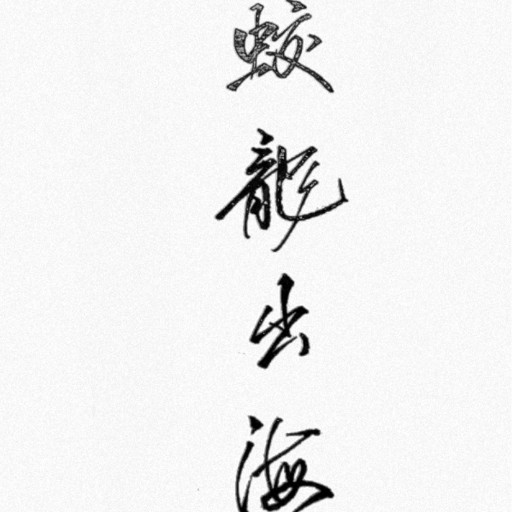 蛟龍出海